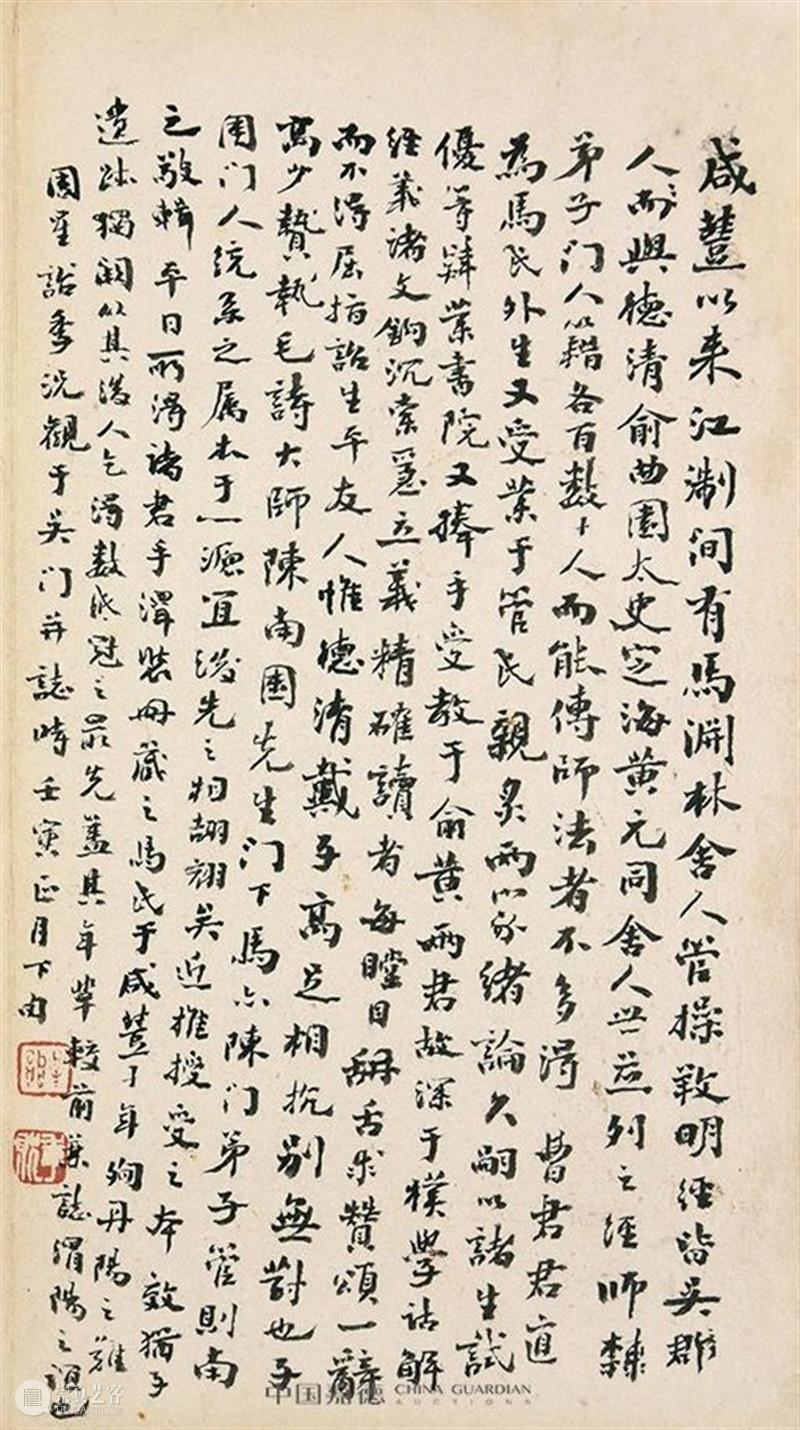 咸豐以来江浙间有馬渊林舍人管操敩明经皆吴郡
人而與德清俞曲園太史定海黄元同舍人並列之经師隸
弟子門人以籍各百數十人而能傳師法者不多得曹君君直
為馬氏外生又受業于管氏親炙兩公緒論久嗣以諸生試
優等肄業書院又捧手受教于俞黄兩君故深于樸學诂解
经義诸文鈎沉索隱立義精確讀者每瞠目矯舌求贊頌一辭
而不得屈指詒生平友人惟德清戴子高足相抗别無對也子
高少贄執毛詩大師陳南園先生门下馬亦陳门弟子管則南
園门人統系之属本于一源宜後先之相颉翃矣近推授受之本效猶子
之敬輯平日所得诸君手澤装册藏之馬氏于咸豐丁年殉丹陽之難
遗跡獨闕以其後人乞得數紙冠之最先蓋其年辈較前兼誌渭陽之誼也
周星詒季况觀于吴门并誌時壬寅正月下旬
中国嘉德 CHINA GUARDIAN
AUCTIONS